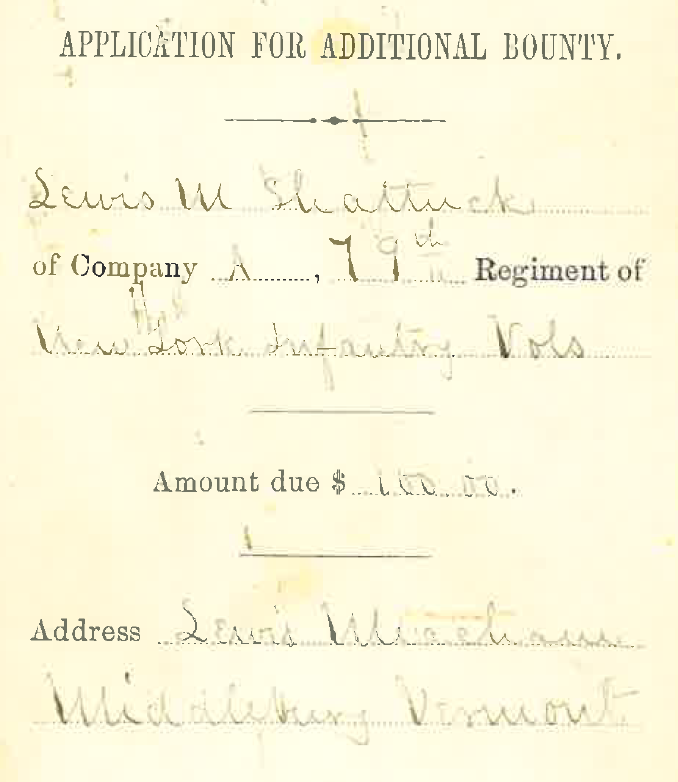 APPLICATION FOR ADDITIONAL BOUNTY.
Lewis M Shattuck
of Company A, 79th Regiment of
New York Infantry Vols
Amount due $ 100.00.
Address Lewis Meacham
Middlebury Vermont